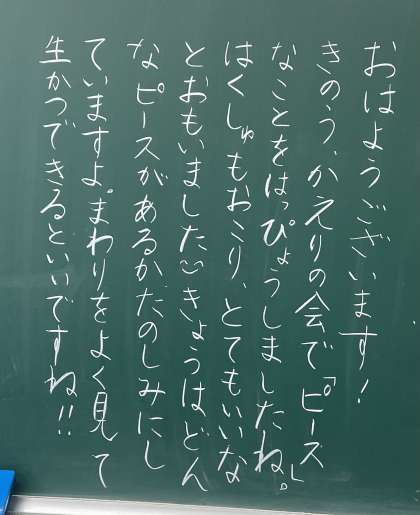 おはようございます!
きのう、かえりの会で「ピース」
なことをはっぴょうしましたね。
はくしゅもおこり、とてもいいな
とおもいました きょうはどん
なピースがあるかたのしみにし
ていますよ。まわりをよく見て
生かつできるといいですね!!